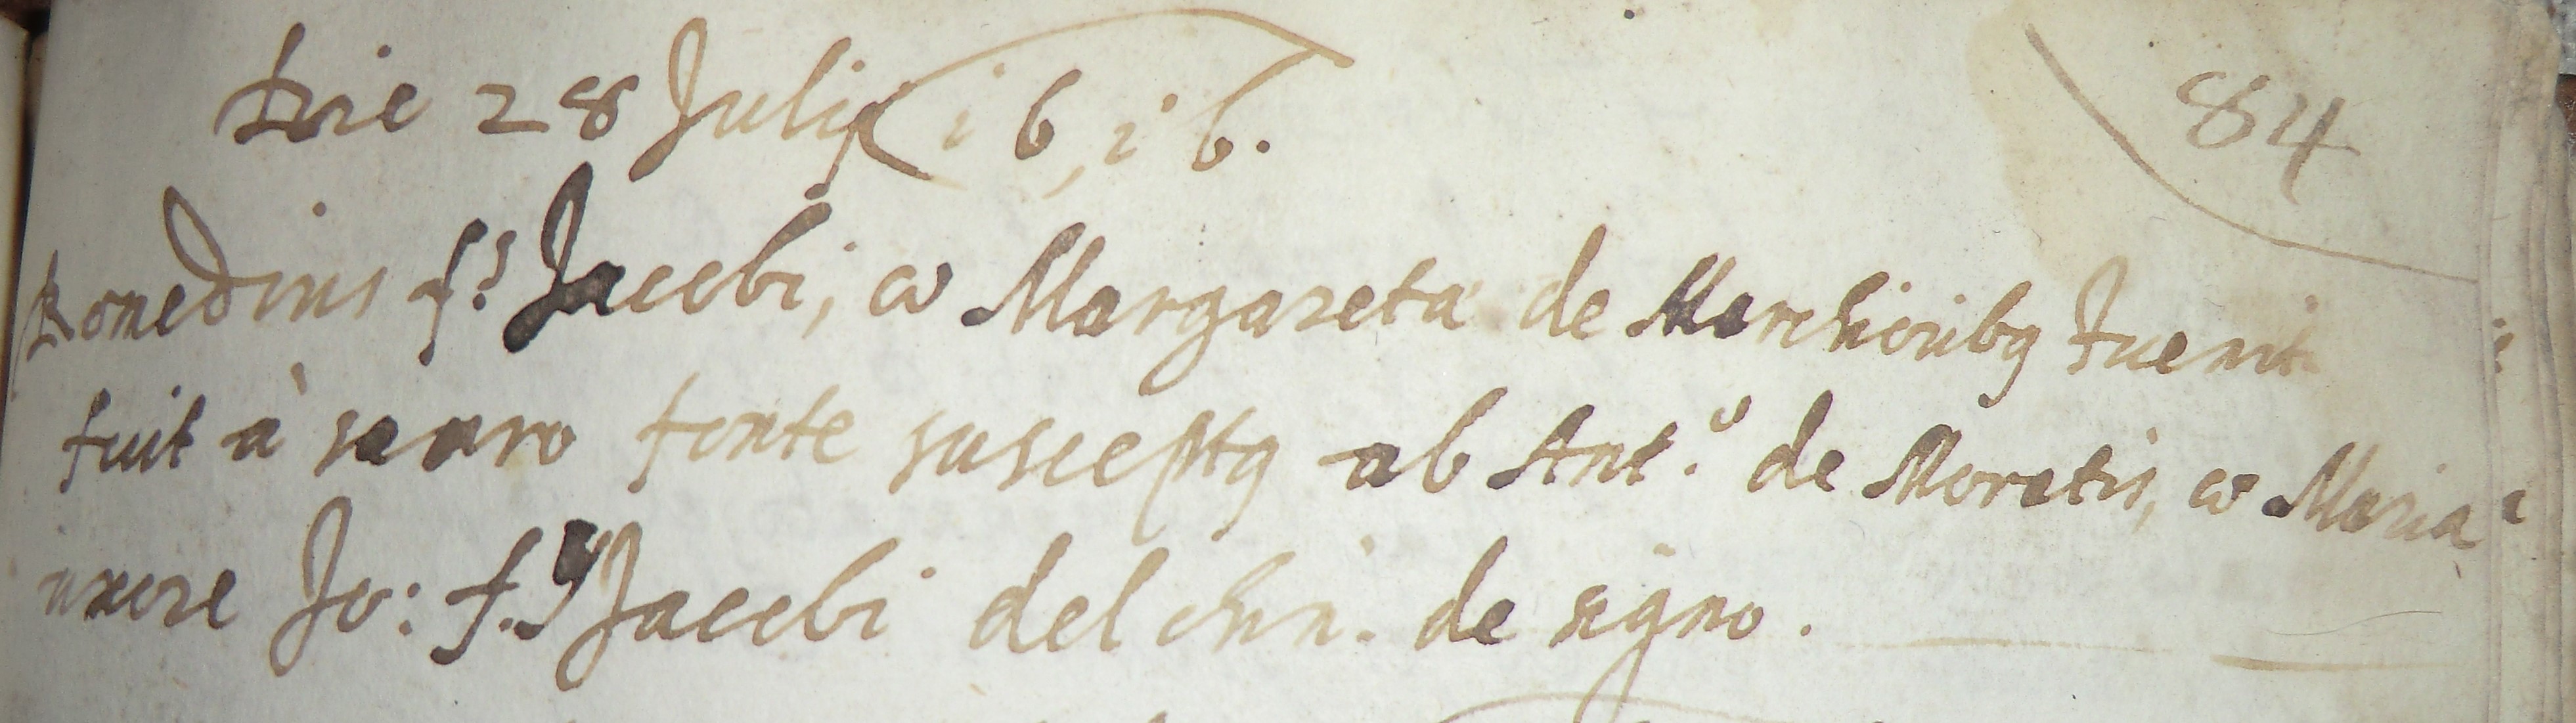 Die 28 Julij 1616.
84
Romedius f.s Jacobi, et Margareta de Marchioribq
fuit à sacro fonte susceptq ab Ant.o de Moratis, et Maria
uxore Jo: f. Jacobi del de signo.